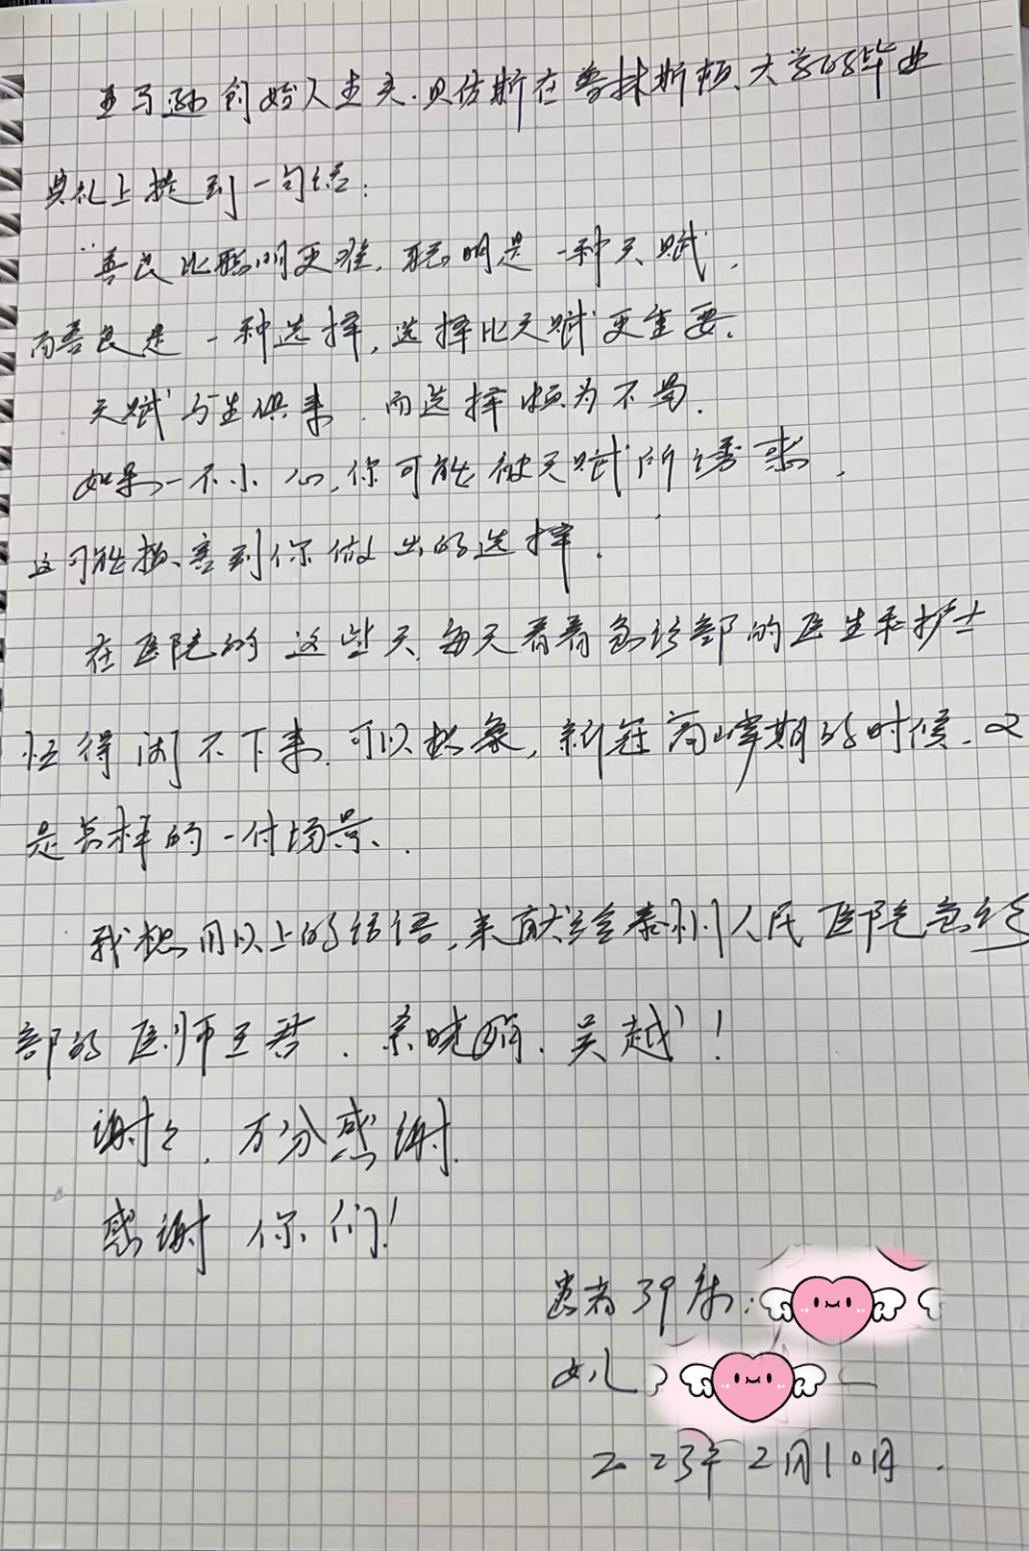 亚马逊创始人杰夫.贝佐斯在普林斯顿大学的毕业
典礼上提到一句话:
"善良比聪明更难,聪明是一种天赋,
而善良是一种选择,选择比天赋更重要.
天赋与生俱来,而选择颇为不易.
如果一不小心,你可能被天赋所诱惑,
这可能损害到你做出的选择.
在医院的这些天,每天看着急诊部的医生和护士
忙得闲不下来,可以想象,新冠高峰期的时候,又
是怎样的一付场景.
我想用以上的话语,来献给泰州人民医院急诊
部的医师王磊、晓丽、吴越!
谢谢,万分感谢.
感谢你们!
患者39床:
女儿
二○23年2月10日.